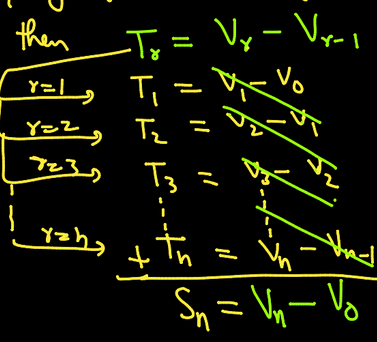 then T_r = V_r - V_{r-1}
r=1 T_1 = V_1 - V_0
r=2 T_2 = V_2 - V_1
r=3 T_3 = V_3 - V_2
r=n + T_n = V_n - V_{n-1}
S_n = V_n - V_0